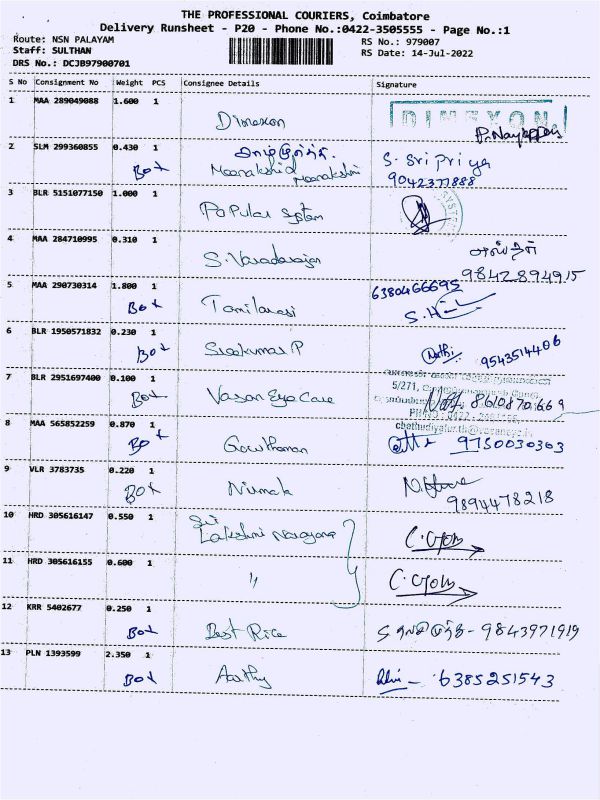 THE PROFESSIONAL COURIERS, Coimbatore
Delivery Runsheet - P20 - Phone No.:0422-3505555 - Page No.:1
Route: NSN PALAYAM RS No.: 979007
Staff: SULTHAN RS Date: 14-Jul-2022
DRS No.: DCJB97900701
S No Consignment No Weight PCS Consignee Details Signature
1 MAA 289049088 1.600 1 Dimexon DIMEXON
2 SLM 299360855 0.430 1 Box Meenakshi S. Sri Priya
9042377888
3 BLR 5151077150 1.000 1 Popular System
4 MAA 284710995 0.310 1 S. Varadarajan
9842894915
5 MAA 290730314 1.800 1 Box Tamilarasi 6380466695
6 BLR 1950571832 0.230 1 Box Sivakumar P 9543514406
7 BLR 2951697400 0.100 1 Box Vasan Eye Care 5/271, 8610870669
8 MAA 565852259 0.870 1 Box Gowthaman 9750030303
9 VLR 3783735 0.220 1 Box Nirmala
9894478218
10 HRD 305616147 0.550 1 Sri Lakshmi Narayana
11 HRD 305616155 0.600 1 "
12 KRR 5402677 0.250 1 Box Best Rice 9843971919
13 PLN 1393599 2.350 1 Box Aarthy 6385251543